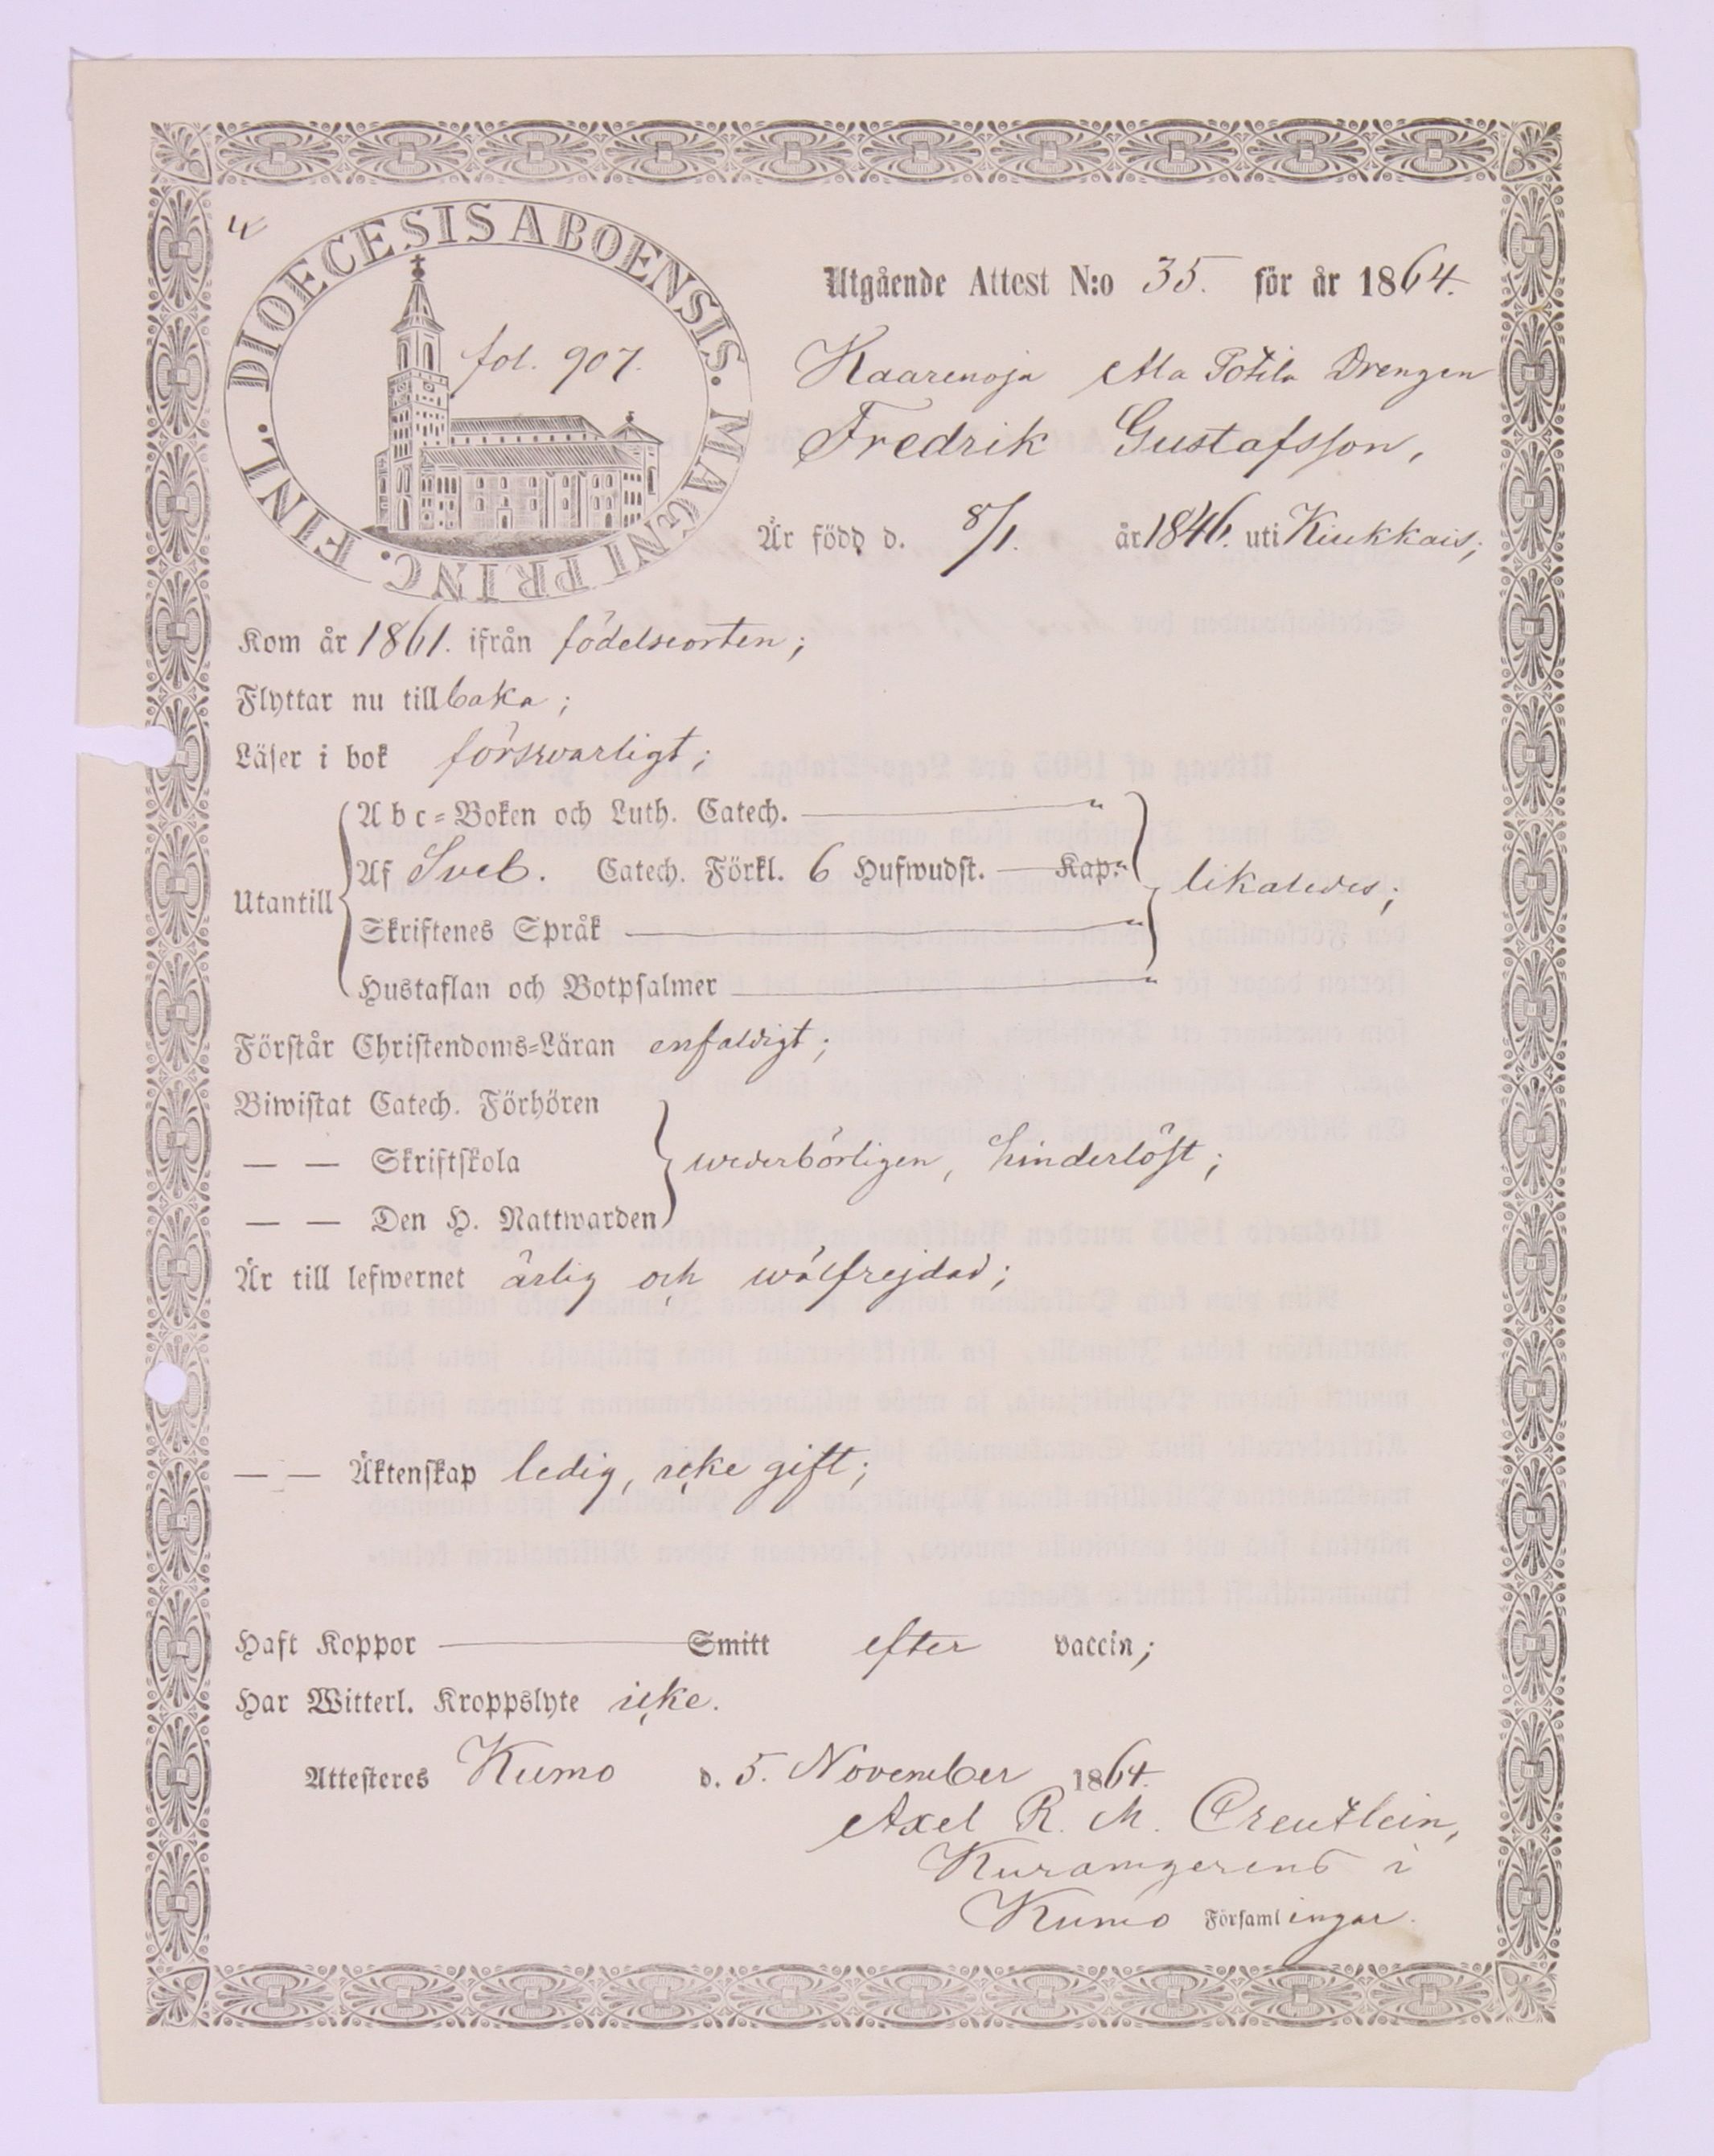 DIOECESIS ABOENSIS. MAGNI PRINC. FINL.
fol. 907.
Utgående Attest N:o 35. för år 1864.
Kaarenoja Ala Potila Drengen
Fredrik Gustafsson,
Är född d. 8/1. år 1846. uti Kiukkais;
Kom år 1861. ifrån födelseorten;
Flyttar nu tillbaka;
Läser i bok försvarligt;
Utantill
Abc=Boken och Luth. Catech. — "
Af Sveb. Catech. Förkl. 6 Hufwudst. — Kap. "
Skriftenes Språk — "
Hustaflan och Botpsalmer — "
likaledes;
Förstår Christendoms=Läran enfaldigt;
Biwistat Catech. Förhören
— — Skriftskola
— — Den H. Nattwarden
wederbörligen, hinderlöst;
Är till lefwernet ärlig och wälfrejdad;
— — Äktenskap ledig, icke gift;
Haft Koppor — Smitt efter vaccin;
Har Witterl. Kroppslyte icke.
Attesteres Kumo d. 5. November 1864.
Axel R. M. Creutlein,
Kuramgerens i
Kumo Församlingar.